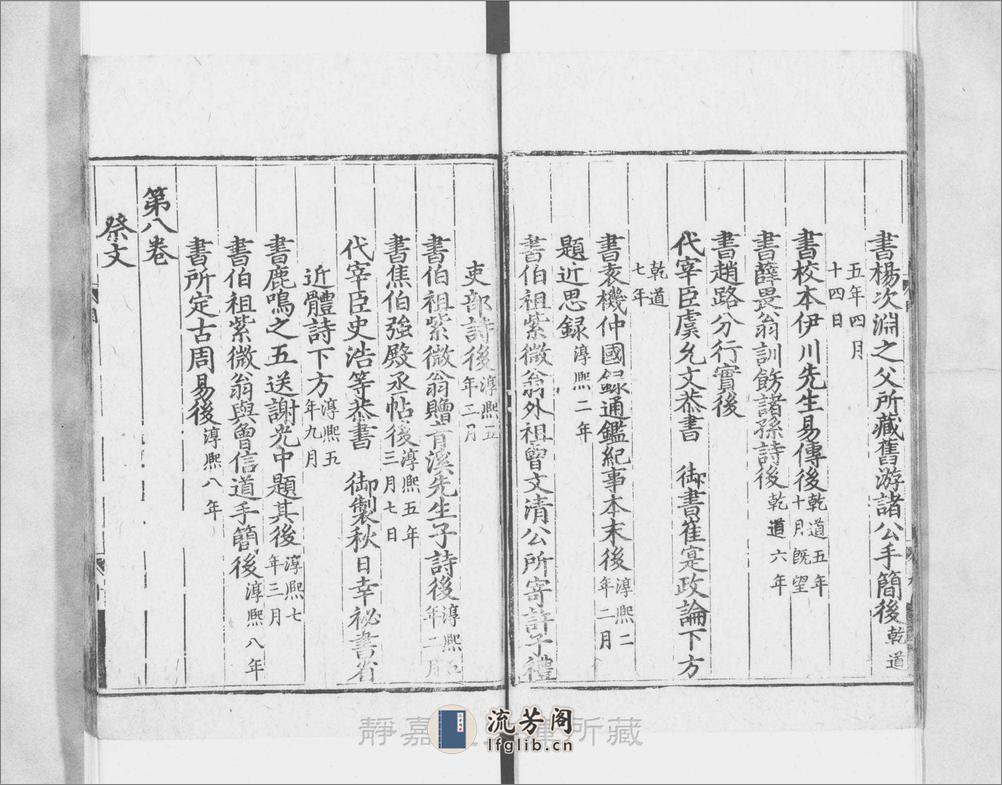 書楊次淵之父所藏舊游諸公手簡後乾道
五年四月十四日
書校本伊川先生易傳後乾道五年十月既望
書薛畏翁訓飭諸孫詩後乾道六年
書趙路分行實後
代宰臣虞允文恭書 御書崔寔政論下方
乾道七年
書袁機仲國錄通鑑紀事本末後淳熙二年二月
題近思録淳熙二年
書伯祖紫微翁外祖曾文清公所寄許子禮
吏部詩後淳熙五年三月
書伯祖紫微翁贈青溪先生子詩後淳熙年二月
書焦伯強殿丞帖後淳熙五年三月七日
代宰臣史浩等恭書 御製秋日幸祕書省
近體詩下方淳熙五年九月
書鹿鳴之五送謝光中題其後淳熙七年三月
書伯祖紫微翁與曾信道手簡後淳熙八年
書所定古周易後淳熙八年
第八卷
祭文
靜嘉所藏
流芳阁
lfglib.cn